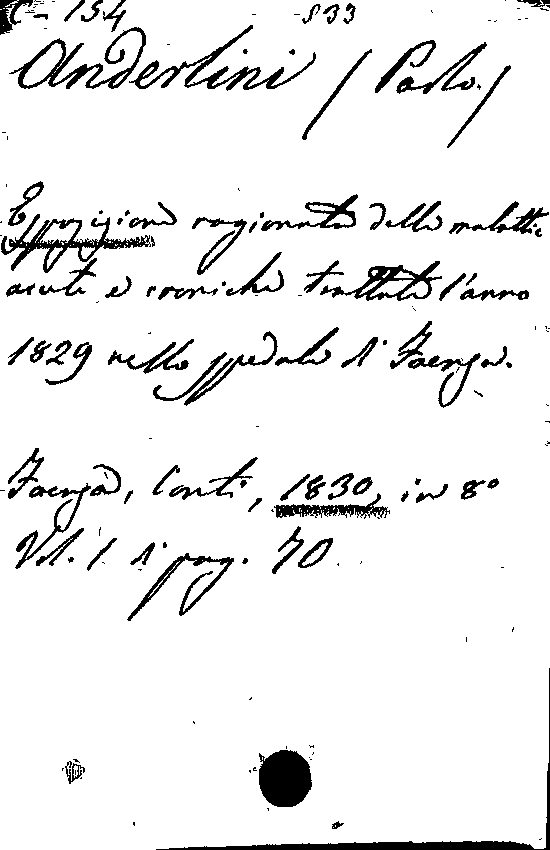 C-154 833
Anderlini (Paolo)
Esposizione ragionata delle malattie
acute e croniche trattate l'anno
1829 nello spedale di Faenza.
Faenza, Conti, 1830, in 8°
Vol. 1 di pag. 70